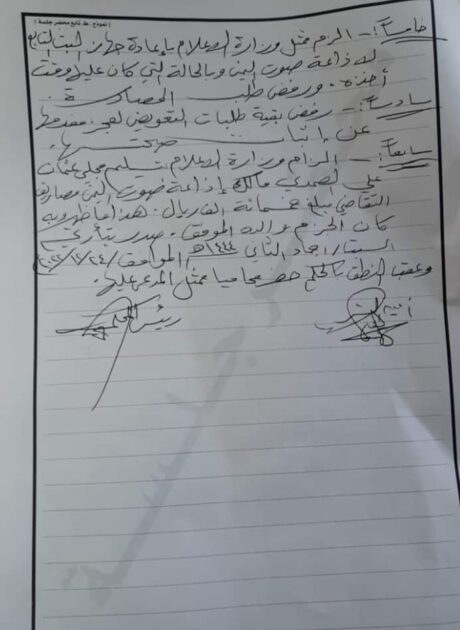 (نموذج. ط تابع محضر جلسة)
خامساً: - الزم ممثل وزارة الاعلام بإعادة جهاز البث التابع
لاذاعة صوت اليمن وبالحالة التي كان عليها وقت
أخذه. ورفض طلب المصادرة.
سادساً: - رفض بقية طلبات التعويض لعجز مقدمها
عن إثبات صحتها.
سابعاً: - الزام وزارة الاعلام تسليم مجلي عثمان
علي الصمدي مالك إذاعة صوت اليمن مصاريف
التقاضي مبلغ خمسمائة الف ريال. هذا ما ظهر وبه
كان الحزم والله الموفق. صدر بتأريخ
جماد الثاني ١٤٤٤هـ الموافق ٢٤/١٢/٢٠٢٢
وعقب النطق بالحكم حضر محاميا ممثل المدعى عليها.
أمين السر
رئيس المحكمة